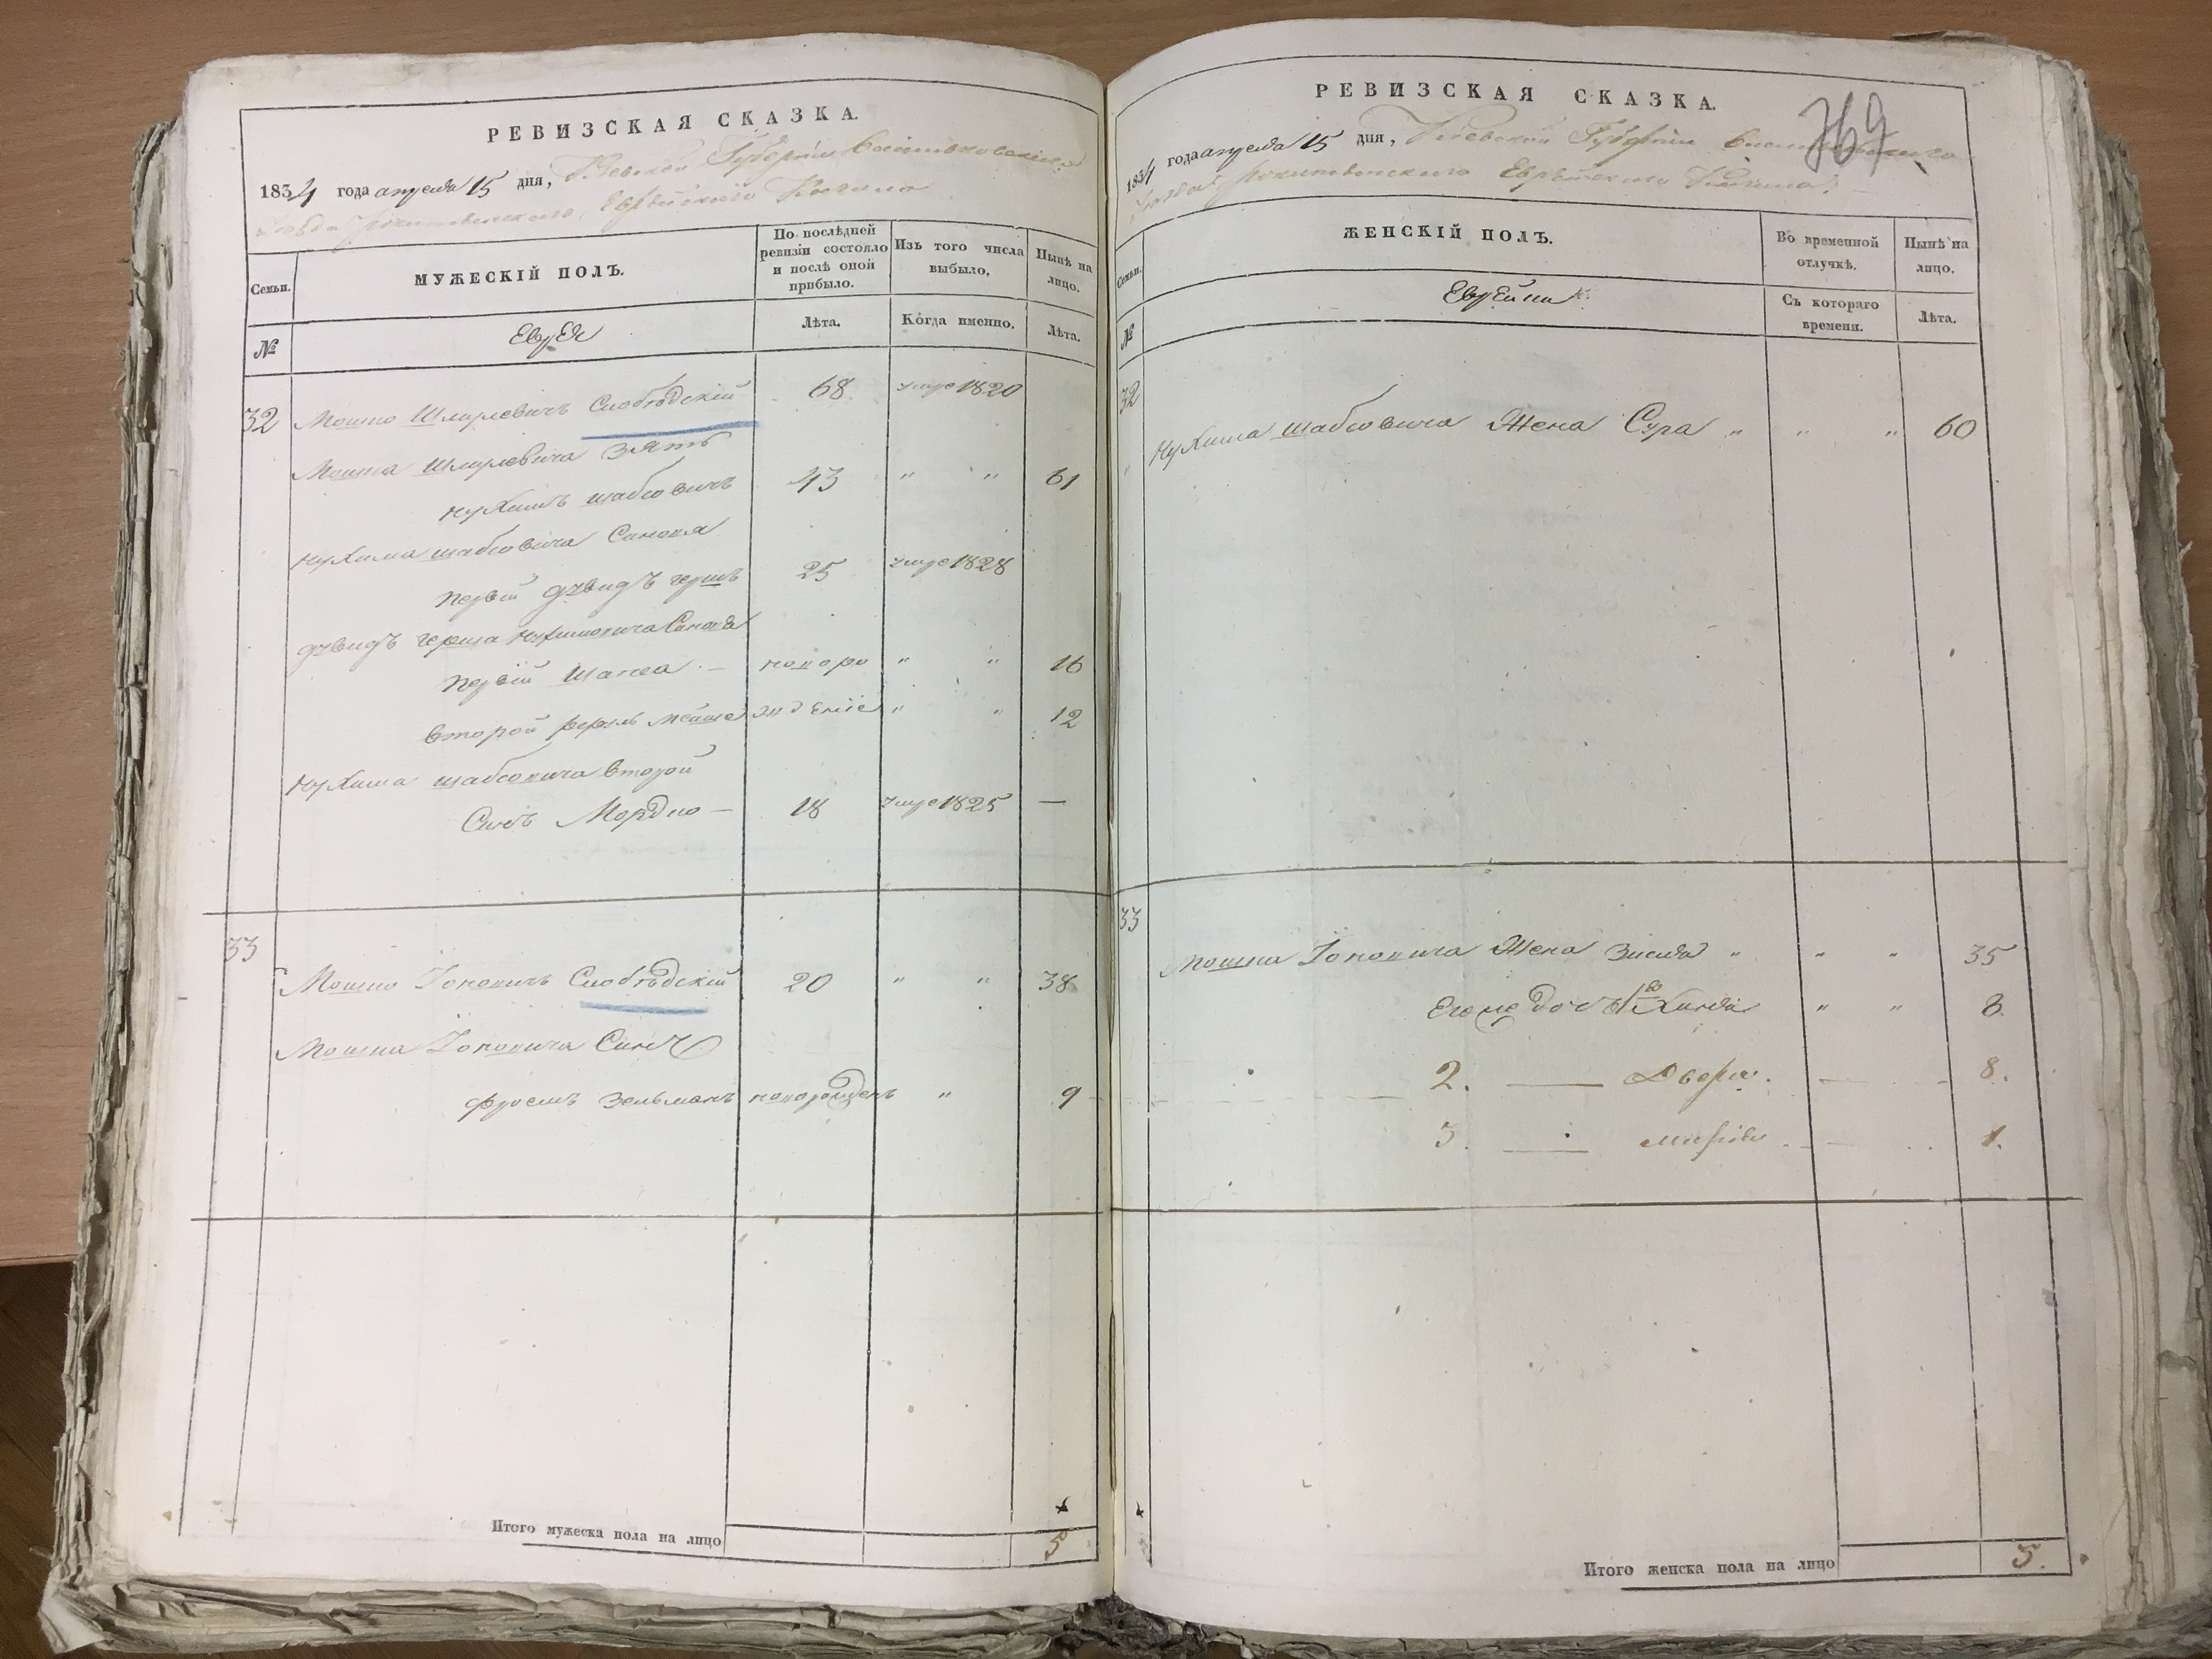 РЕВИЗСКАЯ СКАЗКА.
1834 года апреля 15 дня, Киевской Губернiи Васильковскаго
уезда Рокитянского Еврейского Кагала
Семьи. МУЖЕСКІЙ ПОЛЪ. По послѣдней ревизіи состояло и послѣ оной прибыло. Изъ того числа выбыло. Нынѣ на лицо.
№ Евреи Лѣта. Когда именно. Лѣта.
32 Мошко Шмулевичъ Слободскій 68 умре 1820
Мошка Шмулевича Зять
Нухимъ Шабсовичъ 43 " " 61
Нухима Шабсовича Синовя
первiй Герш 25 умре 1828
Герша Нухимовича Синовя
первiй Шапса — новоро " " 16
второй Мойше жденiе " " 12
Нухима Шабсовича второй
Синъ Мордко — 18 умре 1825 —
33 Мошко Іоновичъ Слободскій 20 " " 38
Мошка Іоновича Синъ
Фроимъ Зельманъ новорожденъ " 9
Итого мужеска пола на лицо 5
РЕВИЗСКАЯ СКАЗКА.
769
1834 года апреля 15 дня, Киевской Губернiи Васильковскаго
уезда Рокитянского Еврейского Кагала
Семьи. ЖЕНСКІЙ ПОЛЪ. Во временной отлучкѣ. Нынѣ на лицо.
№ Еврейки Съ котораго времени. Лѣта.
32 Нухима Шабсовича Жена Сура " " " 60
33
Мошка Іоновича Жена Зисля " " " 35
Его же дочь 1 Хинда " " 8.
2. — Двера. — 8.
3. — — 1.
Итого женска пола на лицо 5.